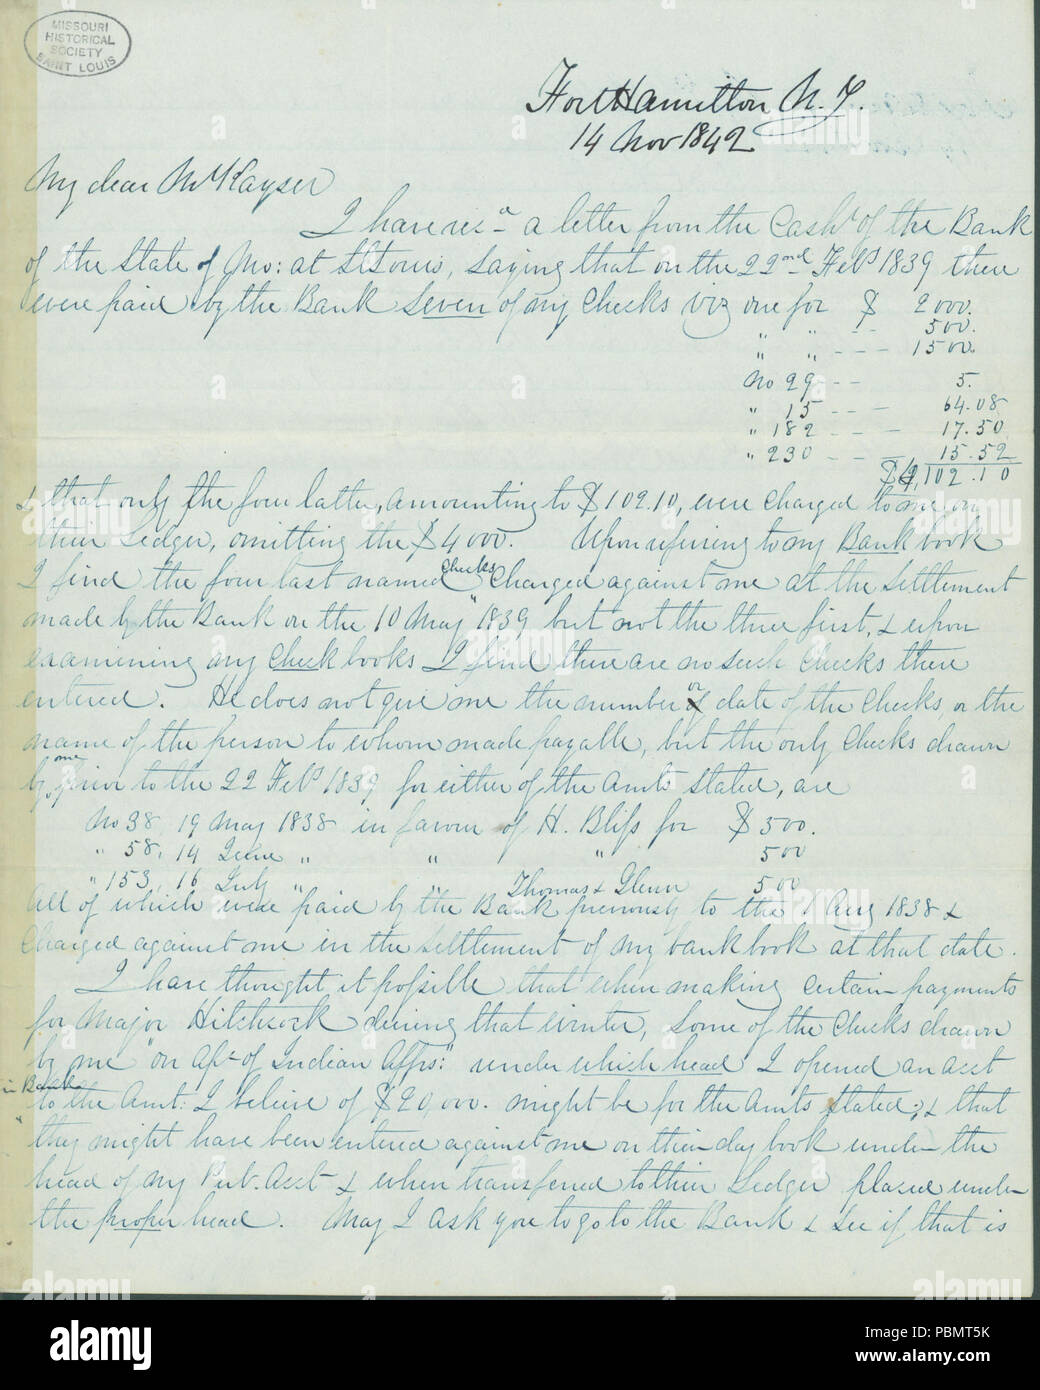 MISSOURI
HISTORICAL
SOCIETY
SAINT LOUIS
Fort Hamilton N. Y.
14 Nov 1842
My dear Mr Kayser
I have recd a letter from the Cashr of the Bank
of the State of Mo: at St Louis, saying that on the 22nd Feby 1839 there
were paid by the Bank seven of my checks viz one for $ 2000.
" " -- 500.
" " --- 1500.
No 29 -- 5.
" 15 --- 64.08
" 182 --- 17.50
" 230 --- 15.52
$4,102.10
& that only the four latter, amounting to $102.10, were charged to me on
their Ledger, omitting the $4000. Upon referring to my Bank book
I find the four last named checks charged against me at the settlement
made by the Bank on the 10 May 1839 but not the three first, & upon
examining my check books I find there are no such checks there
entered. He does not give me the number or date of the checks, or the
name of the person to whom made payable, but the only checks drawn
by me prior to the 22 Feby 1839 for either of the amts stated, are
No 38, 19 May 1838 in favour of H. Bliss for $500.
" 58, 14 June " " " 500
" 153, 16 July " " Thomas & Glenn 500
All of which were paid by the Bank previously to the 1 Aug 1838 &
charged against me in the settlement of my bank book at that date.
I have thought it possible that when making certain payments
for Major Hitchcock during that winter, some of the checks drawn
by me "on apc of Indian Affrs:" under which head I opened an acct
in Bank
to the Amt: I believe of $20,000. might be for the amts stated, & that
they might have been entered against me on their day book under the
head of my Pub. Acct & when transferred to their Ledger placed under
the proper head. May I ask you to go to the Bank & see if that is
alamy
www.alamy.com
Image ID: PBMT5K